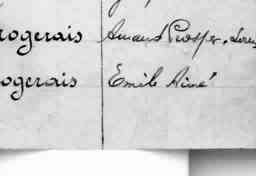 rogerais Armand Prosper, Loren
ogerais Emile Aimé